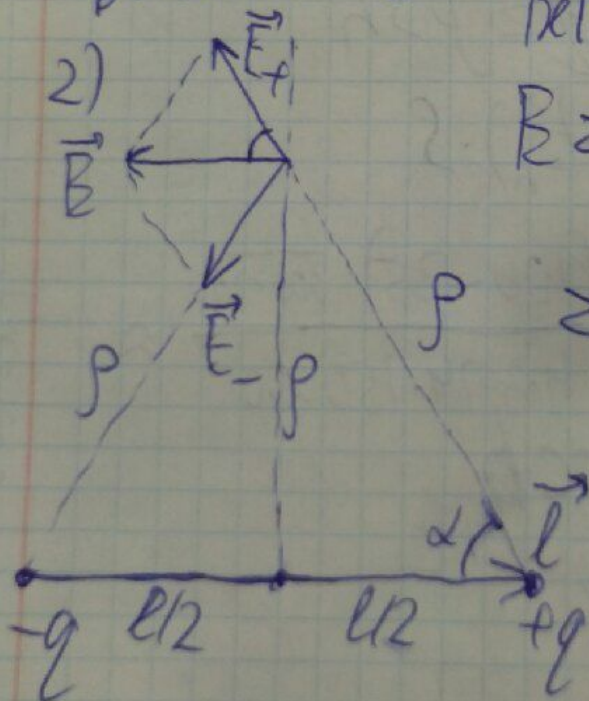 2)
E⃗₊
B⃗
E⃗₋
ρ
ρ
ρ
α
l⃗
-q
l/2
l/2
+q